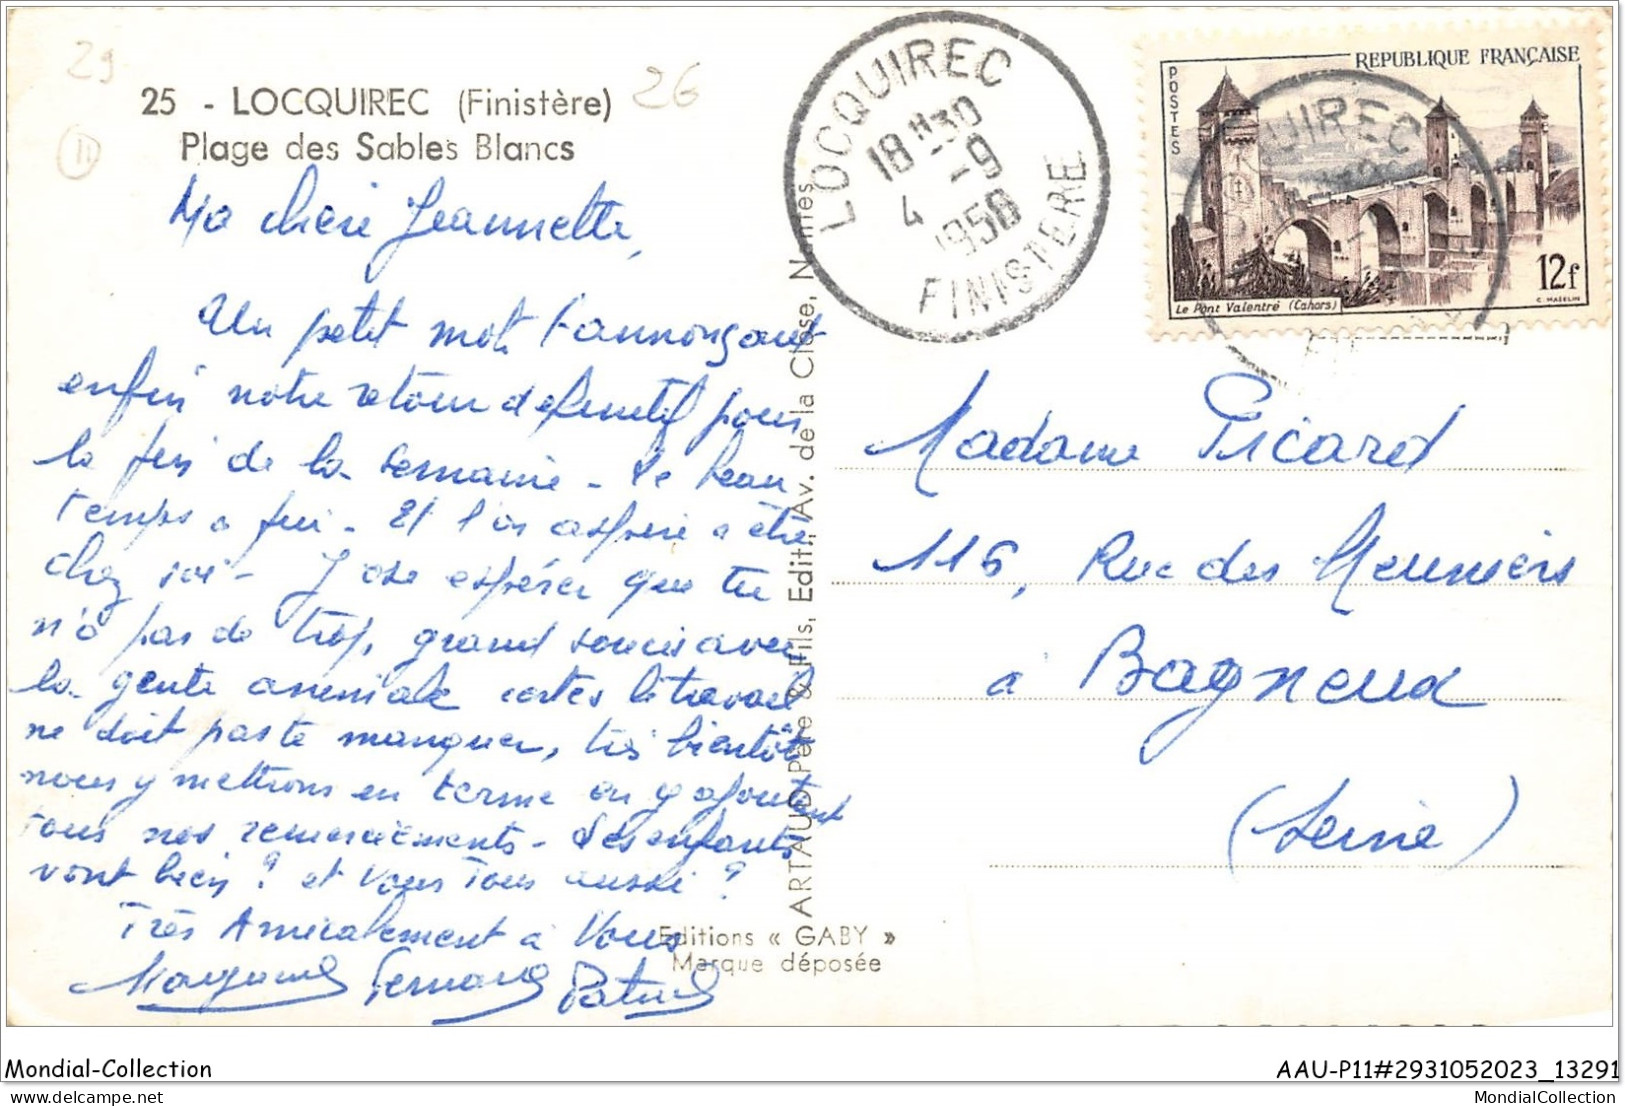 29
25 - LOCQUIREC (Finistère)
26
11
Plage des Sables Blancs
Ma chère Jeannette,
Un petit mot t'annonçant
enfin notre retour définitif pour
la fin de la semaine - le beau
temps a fui - Et l'on aspire a être
chez soi - J'ose espérer que tu
n'a pas de trop grand soucis avec
la gente animale certes le travail
ne doit pas te manquer, très bientôt
nous y mettrons en terme en y ajoutant
tous nos remerciements - Les enfants
vont bien ? et vous tous aussi ?
Très Amicalement à Vous
Fernand Patrick
ARTAUD Père & Fils, Edit., Av. de la Close, Nantes
Editions « GABY »
Marque déposée
LOCQUIREC
18 H 30
4 -9
1958
FINISTERE
REPUBLIQUE FRANÇAISE
POSTES
12f
Le Pont Valentré (Cahors)
C. MAZELIN
Madame Picard
116, Rue des Meuniers
à Bagneux
(Seine)
Mondial-Collection
AAU-P11#2931052023_13291
MondialCollection